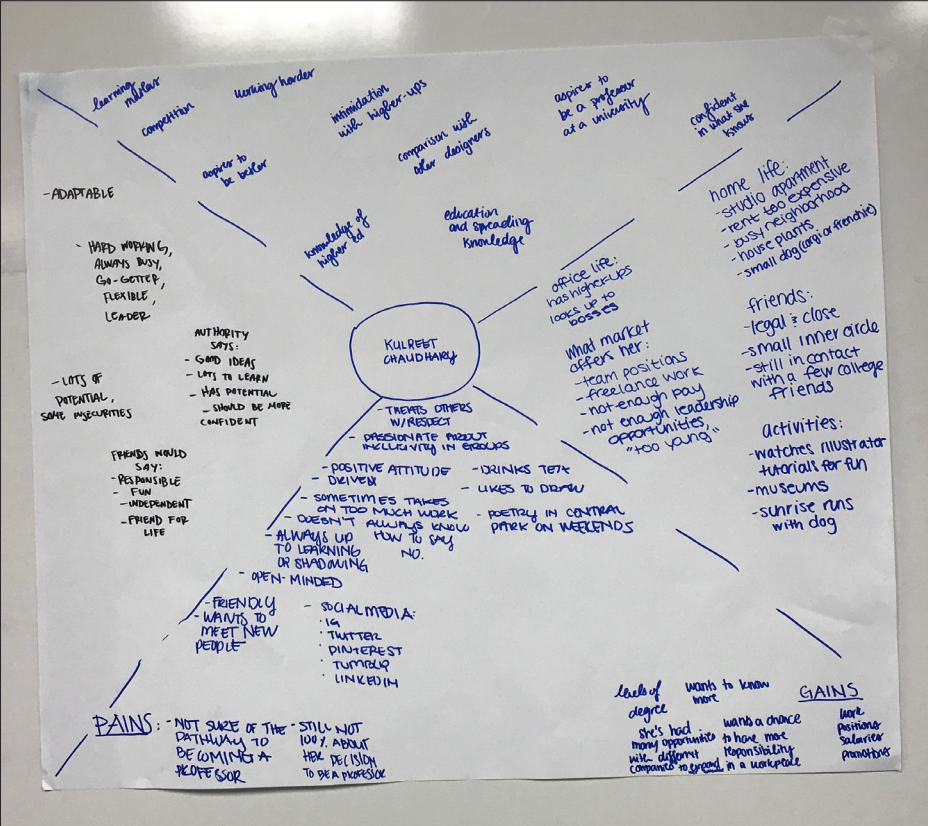 learning
competition
working harder
intimidation
with higher-ups
aspires to
be a professor
at a university
confident
in what she
knows
aspires to
be better
comparison with
other designers
knowledge of
higher ed
education
and spreading
knowledge
- ADAPTABLE
- HARD WORKING,
ALWAYS BUSY,
GO-GETTER,
FLEXIBLE,
LEADER
- LOTS OF
POTENTIAL,
SOME INSECURITIES
AUTHORITY
SAYS:
- GOOD IDEAS
- LOTS TO LEARN
- HAS POTENTIAL
- SHOULD BE MORE
CONFIDENT
FRIENDS WOULD
SAY:
- RESPONSIBLE
- FUN
- INDEPENDENT
- FRIEND FOR
LIFE
KULREET
CHAUDHARY
home life:
- studio apartment
- rent too expensive
- busy neighborhood
- house plants
- small dog (corgi or frenchie)
office life:
has higher-ups
looks up to
bosses
what market
offers her:
- team positions
- freelance work
- not enough pay
- not enough leadership
opportunities,
"too young"
friends:
- legal & close
- small inner circle
- still in contact
with a few college
friends
activities:
- watches illustrator
tutorials for fun
- museums
- sunrise runs
with dog
- TREATS OTHERS
W/RESPECT
- PASSIONATE ABOUT
INCLUSIVITY IN GROUPS
- POSITIVE ATTITUDE
- DRIVEN
- SOMETIMES TAKES
ON TOO MUCH WORK
- DOESN'T ALWAYS KNOW
HOW TO SAY
NO.
- ALWAYS UP
TO LEARNING
OR SHADOWING
- OPEN-MINDED
- DRINKS TEA
- LIKES TO DRAW
- POETRY IN CENTRAL
PARK ON WEEKENDS
- FRIENDLY
- WANTS TO
MEET NEW
PEOPLE
- SOCIAL MEDIA:
· IG
· TWITTER
· PINTEREST
· TUMBLR
· LINKEDIN
PAINS:
- NOT SURE OF THE
PATHWAY TO
BECOMING A
PROFESSOR
- STILL NOT
100% ABOUT
HER DECISION
TO BE A PROFESSOR
GAINS
levels of
degree
wants to know
more
she's had
many opportunities
with different
companies to expand
wants a chance
to have more
responsibility
in a workplace
work
positions
salaries
promotions